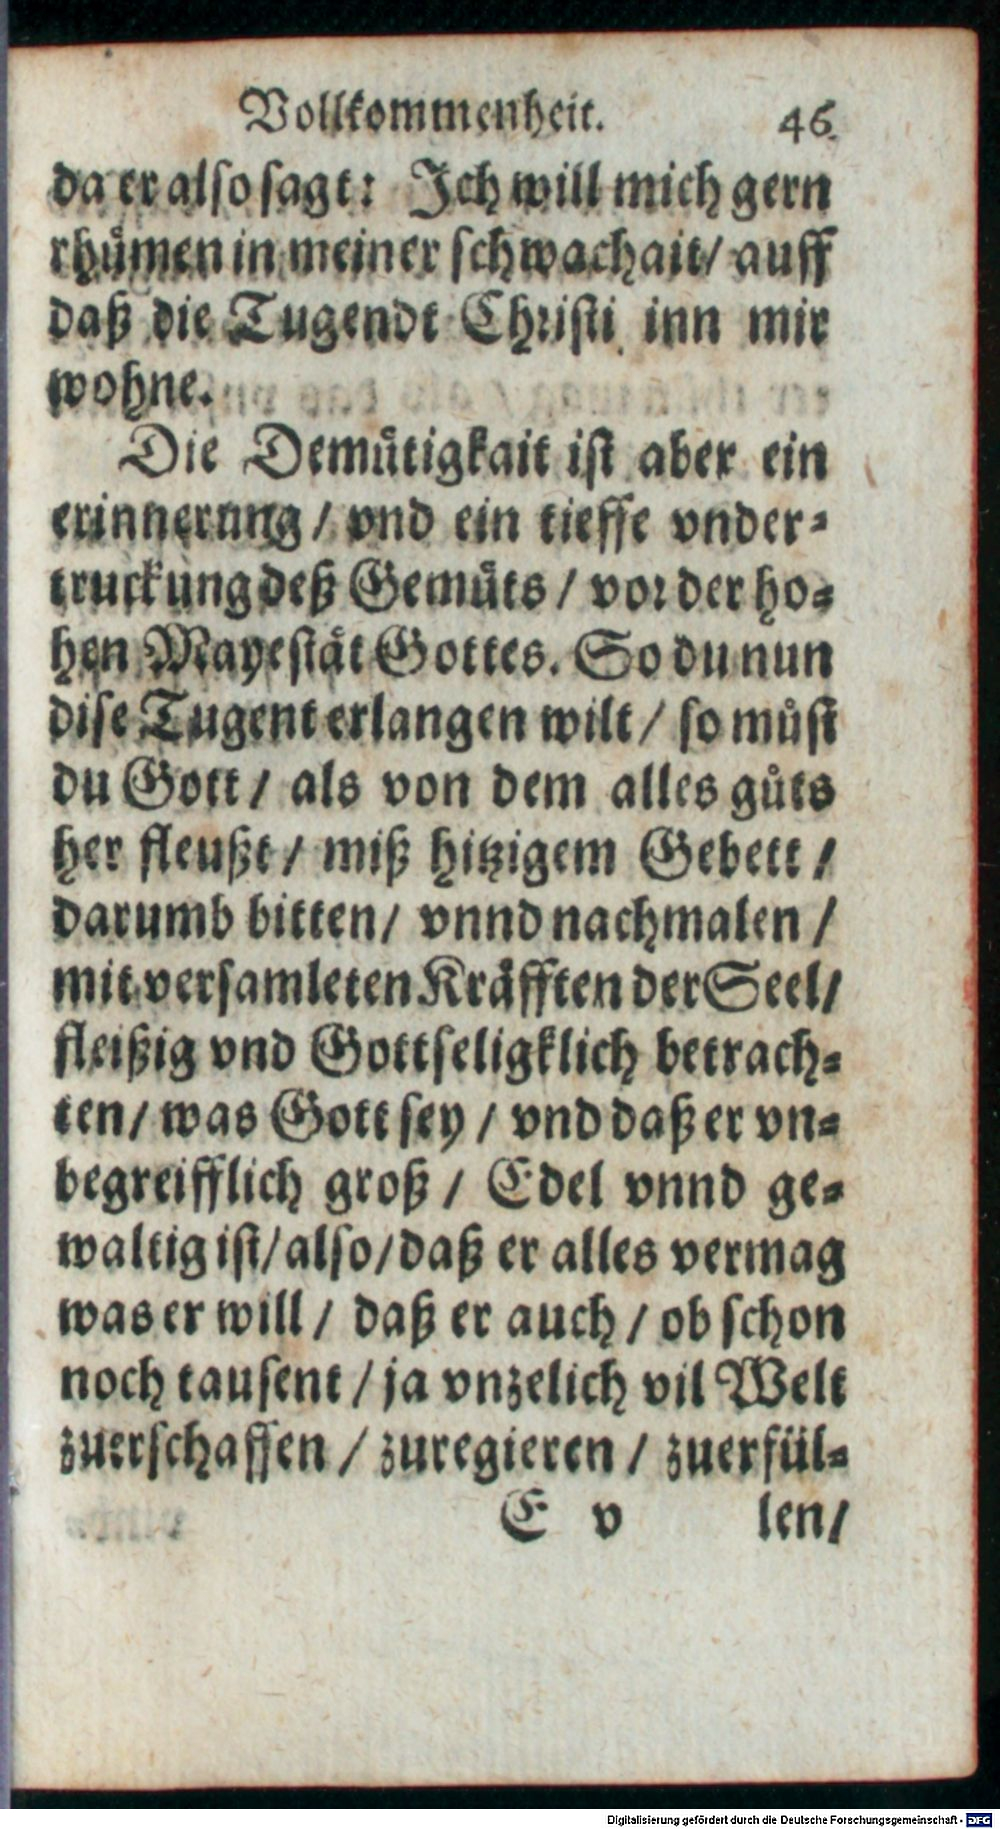 Vollkommenheit. 46.
da er also sagt: Ich will mich gern
rhůmen in meiner schwachait/ auff
daß die Tugendt Christi inn mir
wohne.
Die Demůtigkait ist aber ein
erinnerung / vnd ein tieffe vnder-
truckung deß Gemůts / vor der ho-
hen Mayeståt Gottes. So du nun
dise Tugent erlangen wilt / so můst
du Gott / als von dem alles gůts
her fleußt / miß hitzigem Gebett /
darumb bitten / vnnd nachmalen /
mit versamleten Kråfften der Seel/
fleißig vnd Gottseligklich betrach-
ten / was Gott sey / vnd daß er vn-
begreifflich groß / Edel vnnd ge-
waltig ist/ also/ daß er alles vermag
was er will / daß er auch / ob schon
noch tausent / ja vnzelich vil Welt
zuerschaffen / zuregieren / zuerfül-
E v len/
Digitalisierung gefördert durch die Deutsche Forschungsgemeinschaft - DFG